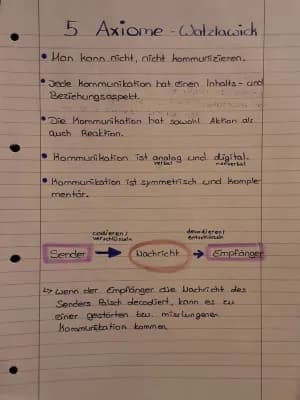 5 Axiome - Watzlawick
• Man kann nicht, nicht kommunizieren.
• Jede Kommunikation hat einen Inhalts- und
Beziehungsaspekt.
• Die Kommunikation hat sowohl Aktion als
auch Reaktion.
• Kommunikation ist analog und digital.
verbal nonverbal
• Kommunikation ist symmetrisch und komple-
mentär.
codieren/ decodieren/
verschlüsseln entschlüsseln
Sender → Nachricht → Empfänger
↳ Wenn der Empfänger die Nachricht des
Senders falsch decodiert, kann es zu
einer gestörten bzw. misslungenen
Kommunikation kommen.